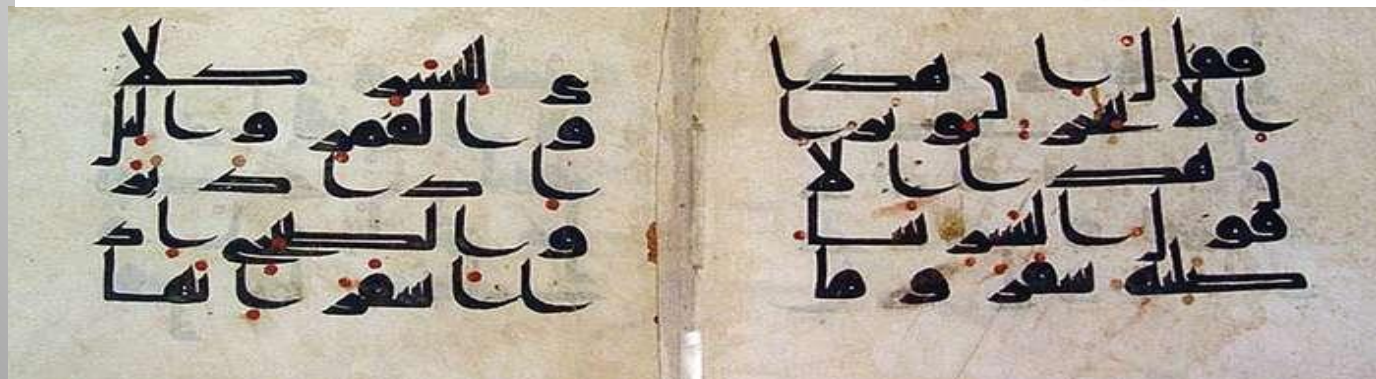 فقال ان هذا
الا سحر يوثر ا
ن هذا الا
قول البشر سا
صليه سقر وما
ى للبشر كلا
والقمر واليل
اذ ادبر
والصبح اذ
ا اسفر انها